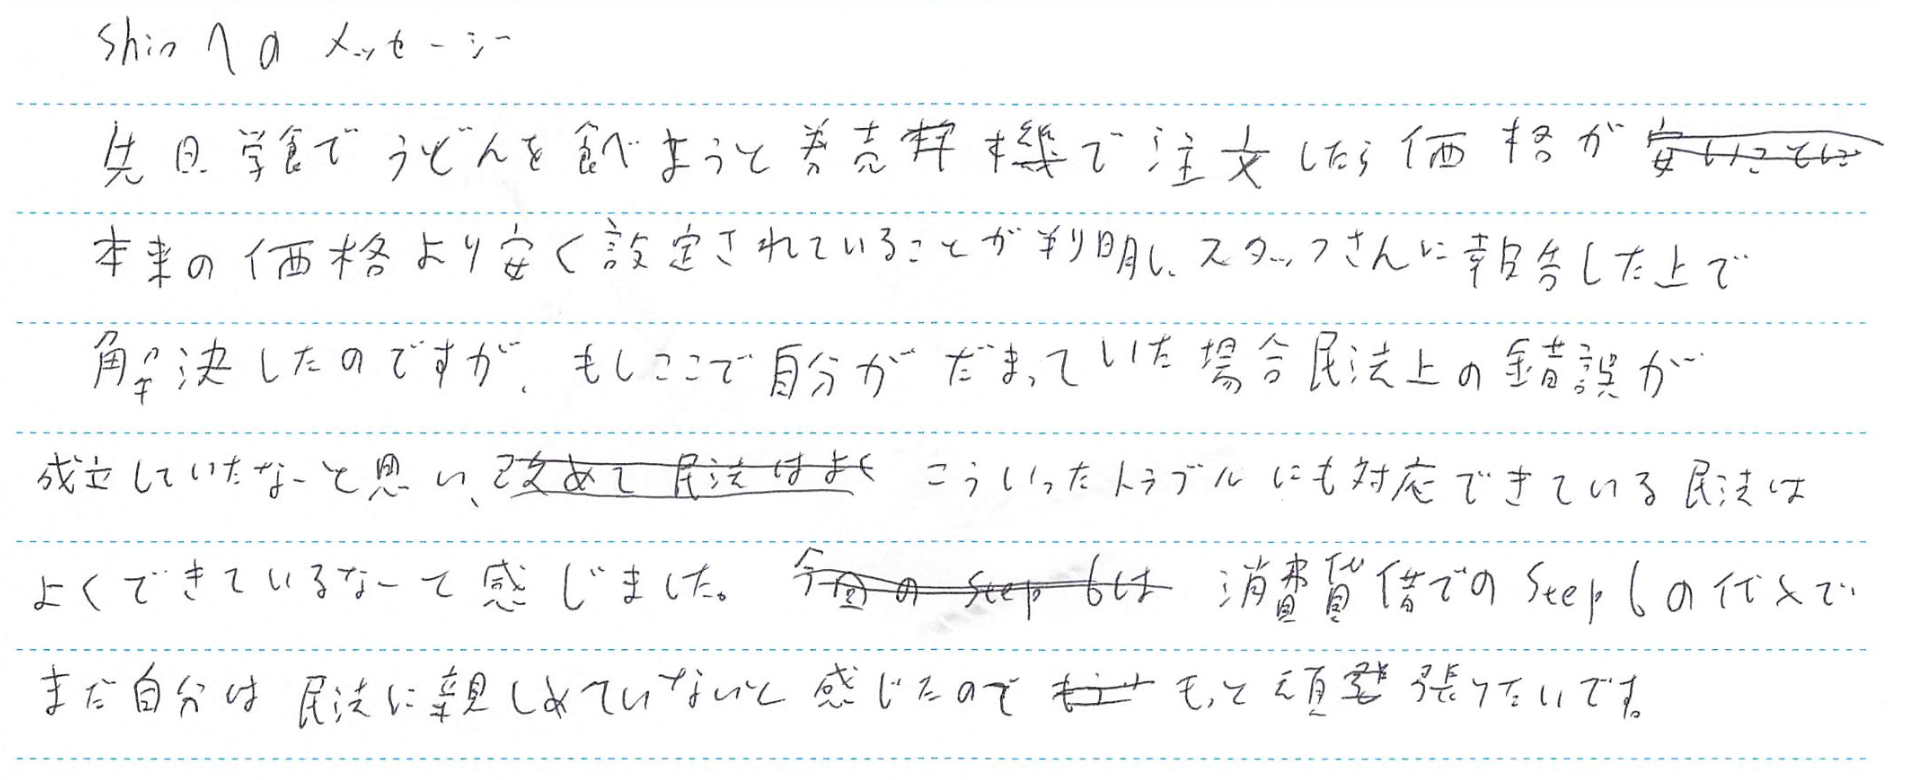 Shinへのメッセージ
先日学食でうどんを食べようと券売機で注文したら価格が
本来の価格より安く設定されていることが判明し、スタッフさんに報告した上で
解決したのですが、もしここで自分がだまっていた場合民法上の錯誤が
成立していたなーと思い、こういったトラブルにも対応できている民法は
よくできているなーて感じました。消費貸借でのStep6の代メで
まだ自分は民法に親しめていないと感じたのでもっと頑張りたいです。